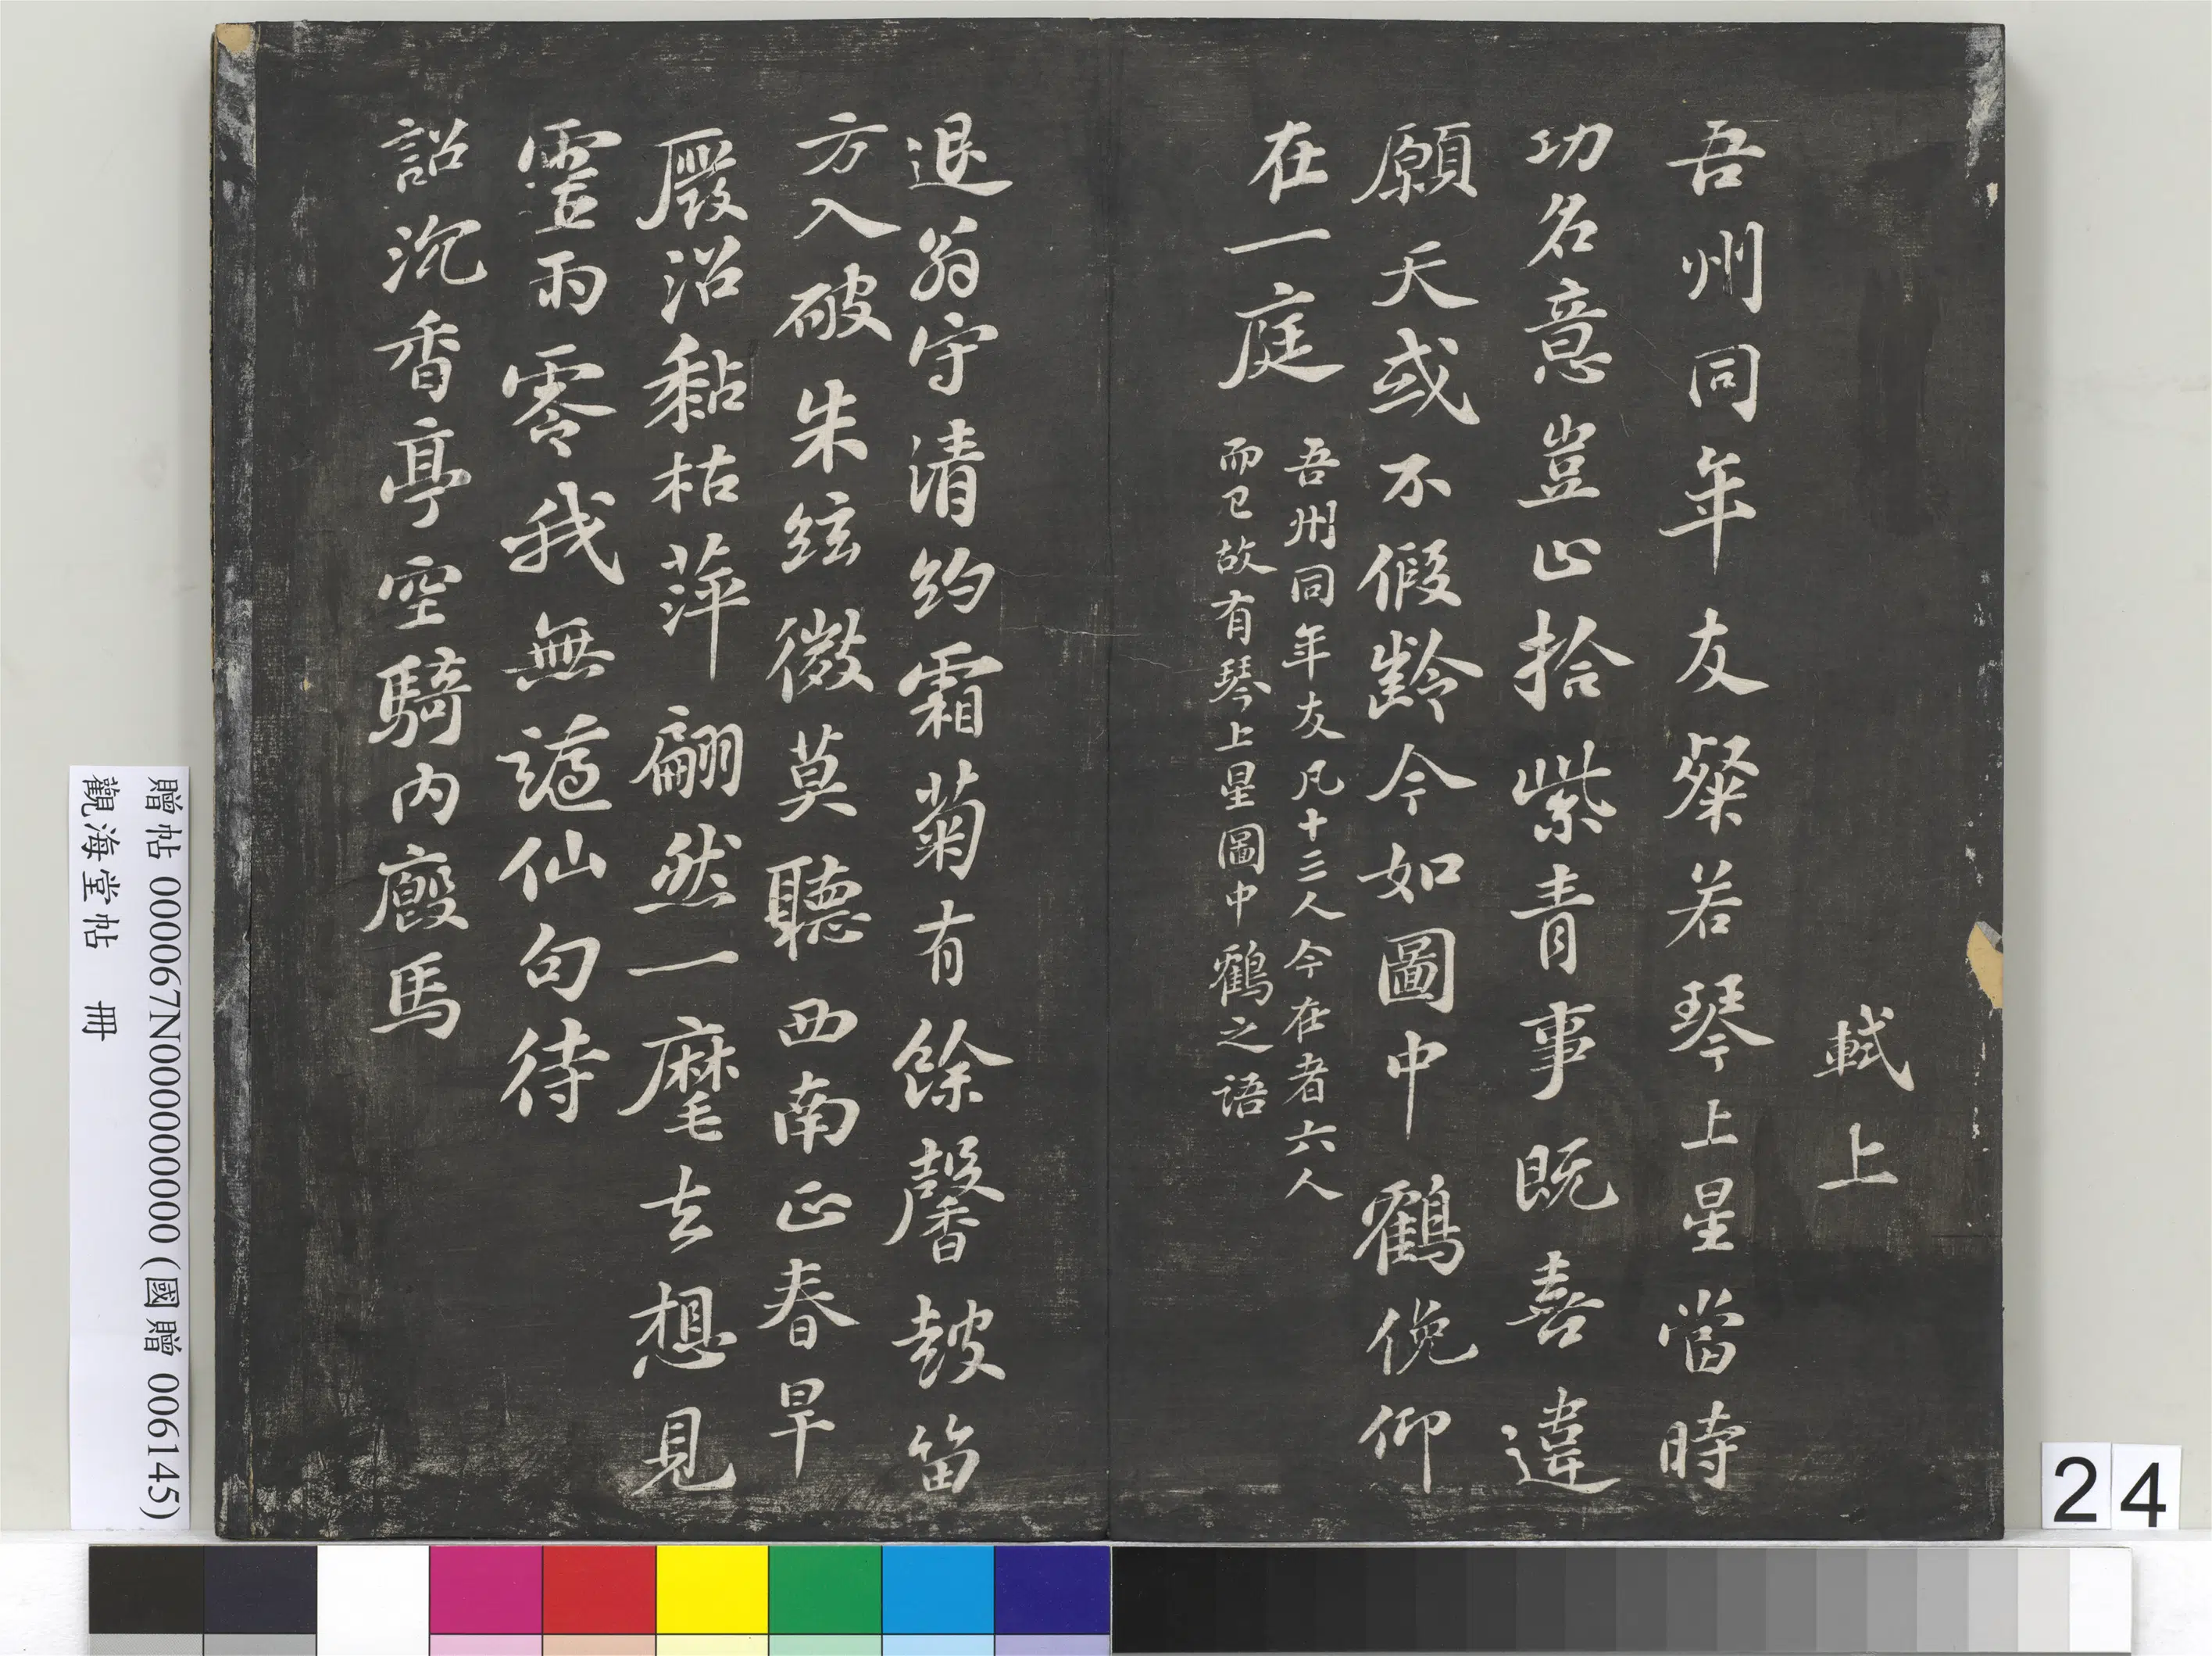 軾上
吾州同年友粲若琴上星當時
功名意豈止拾紫青事既喜違
願天或不假齡今如圖中鶴俛仰
在一庭
吾州同年友凡十三人今在者六人
而已故有琴上星圖中鶴之語
退翁守清約霜菊有餘馨鼓笛
方入破朱絃微莫聽西南正春旱
廢沼黏枯萍翩然一麾去想見
靈雨零我無謫仙句待
詔沉香亭空騎內廄馬
贈帖 000067N000000000 (國贈 006145)
觀海堂帖 冊
24